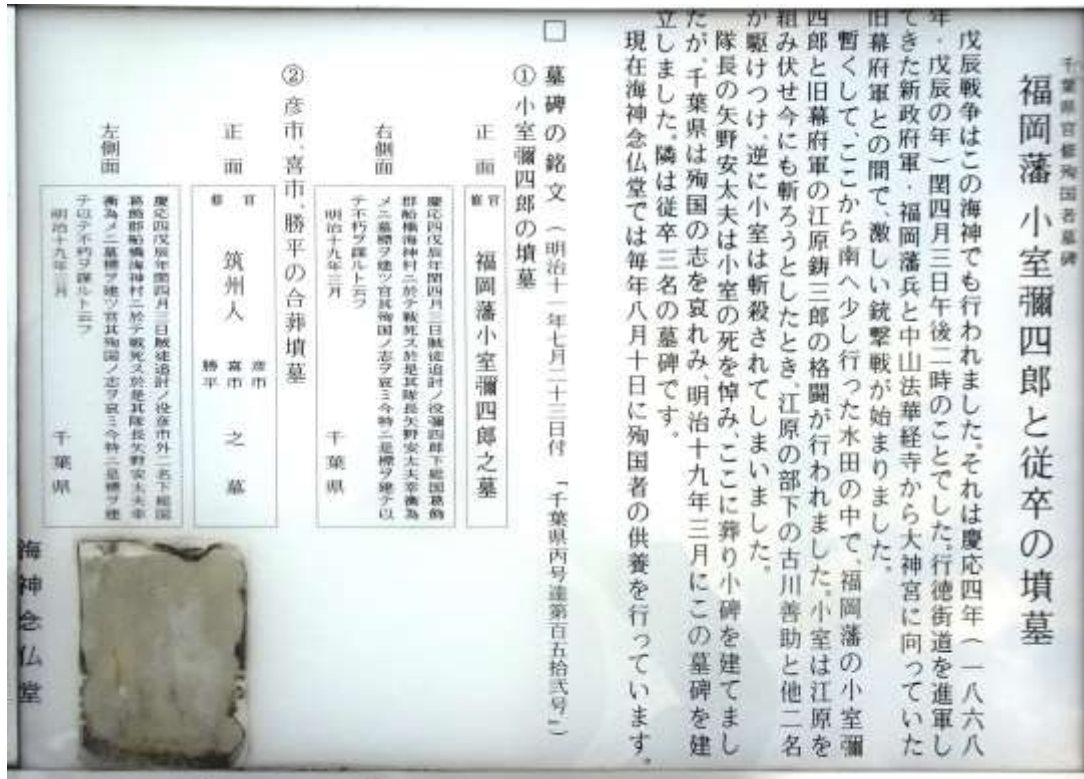 千葉県官修殉国者墓碑
福岡藩 小室彌四郎と従卒の墳墓
戊辰戦争はこの海神でも行われました。それは慶応四年(一八六八
年・戊辰の年)閏四月三日午後二時のことでした。行徳街道を進軍し
てきた新政府軍・福岡藩兵と中山法華経寺から大神宮に向っていた
旧幕府軍との間で、激しい銃撃戦が始まりました。
暫くして、ここから南へ少し行った水田の中で、福岡藩の小室彌
四郎と旧幕府軍の江原鋳三郎の格闘が行われました。小室は江原を
組み伏せ今にも斬ろうとしたとき、江原の部下の古川善助と他二名
が駆けつけ、逆に小室は斬殺されてしまいました。
隊長の矢野安太夫は小室の死を悼み、ここに葬り小碑を建てまし
たが、千葉県は殉国の志を哀れみ、明治十九年三月にこの墓碑を建
立しました。隣は従卒三名の墓碑です。
現在海神念仏堂では毎年八月十日に殉国者の供養を行っています。
□ 墓碑の銘文 (明治十一年七月二十三日付 「千葉県丙号達第百五拾弐号」)
① 小室彌四郎の墳墓
正面
官修 福岡藩小室彌四郎之墓
右側面
慶応四戊辰年閏四月三日賊徒追討ノ役彌四郎下総国葛飾
郡船橋海神村ニ於テ戦死ス於是其隊長矢野安太夫幸衡為
メニ墓標ヲ建ツ官其殉国ノ志ヲ哀ミ今特ニ是標ヲ建テ以
テ不朽ヲ謀ルト云フ
明治十九年三月 千葉県
② 彦市、喜市、勝平の合葬墳墓
正面
官修 筑州人 彦市 喜市 勝平 之墓
左側面
慶応四戊辰年閏四月三日賊徒追討ノ役彦市外二名下総国
葛飾郡船橋海神村ニ於テ戦死ス於是其隊長矢野安太夫幸
衡為メニ墓標ヲ建ツ官其殉国ノ志ヲ哀ミ今特ニ是標ヲ建
テ以テ不朽ヲ謀ルト云フ
明治十九年三月 千葉県
海神念仏堂